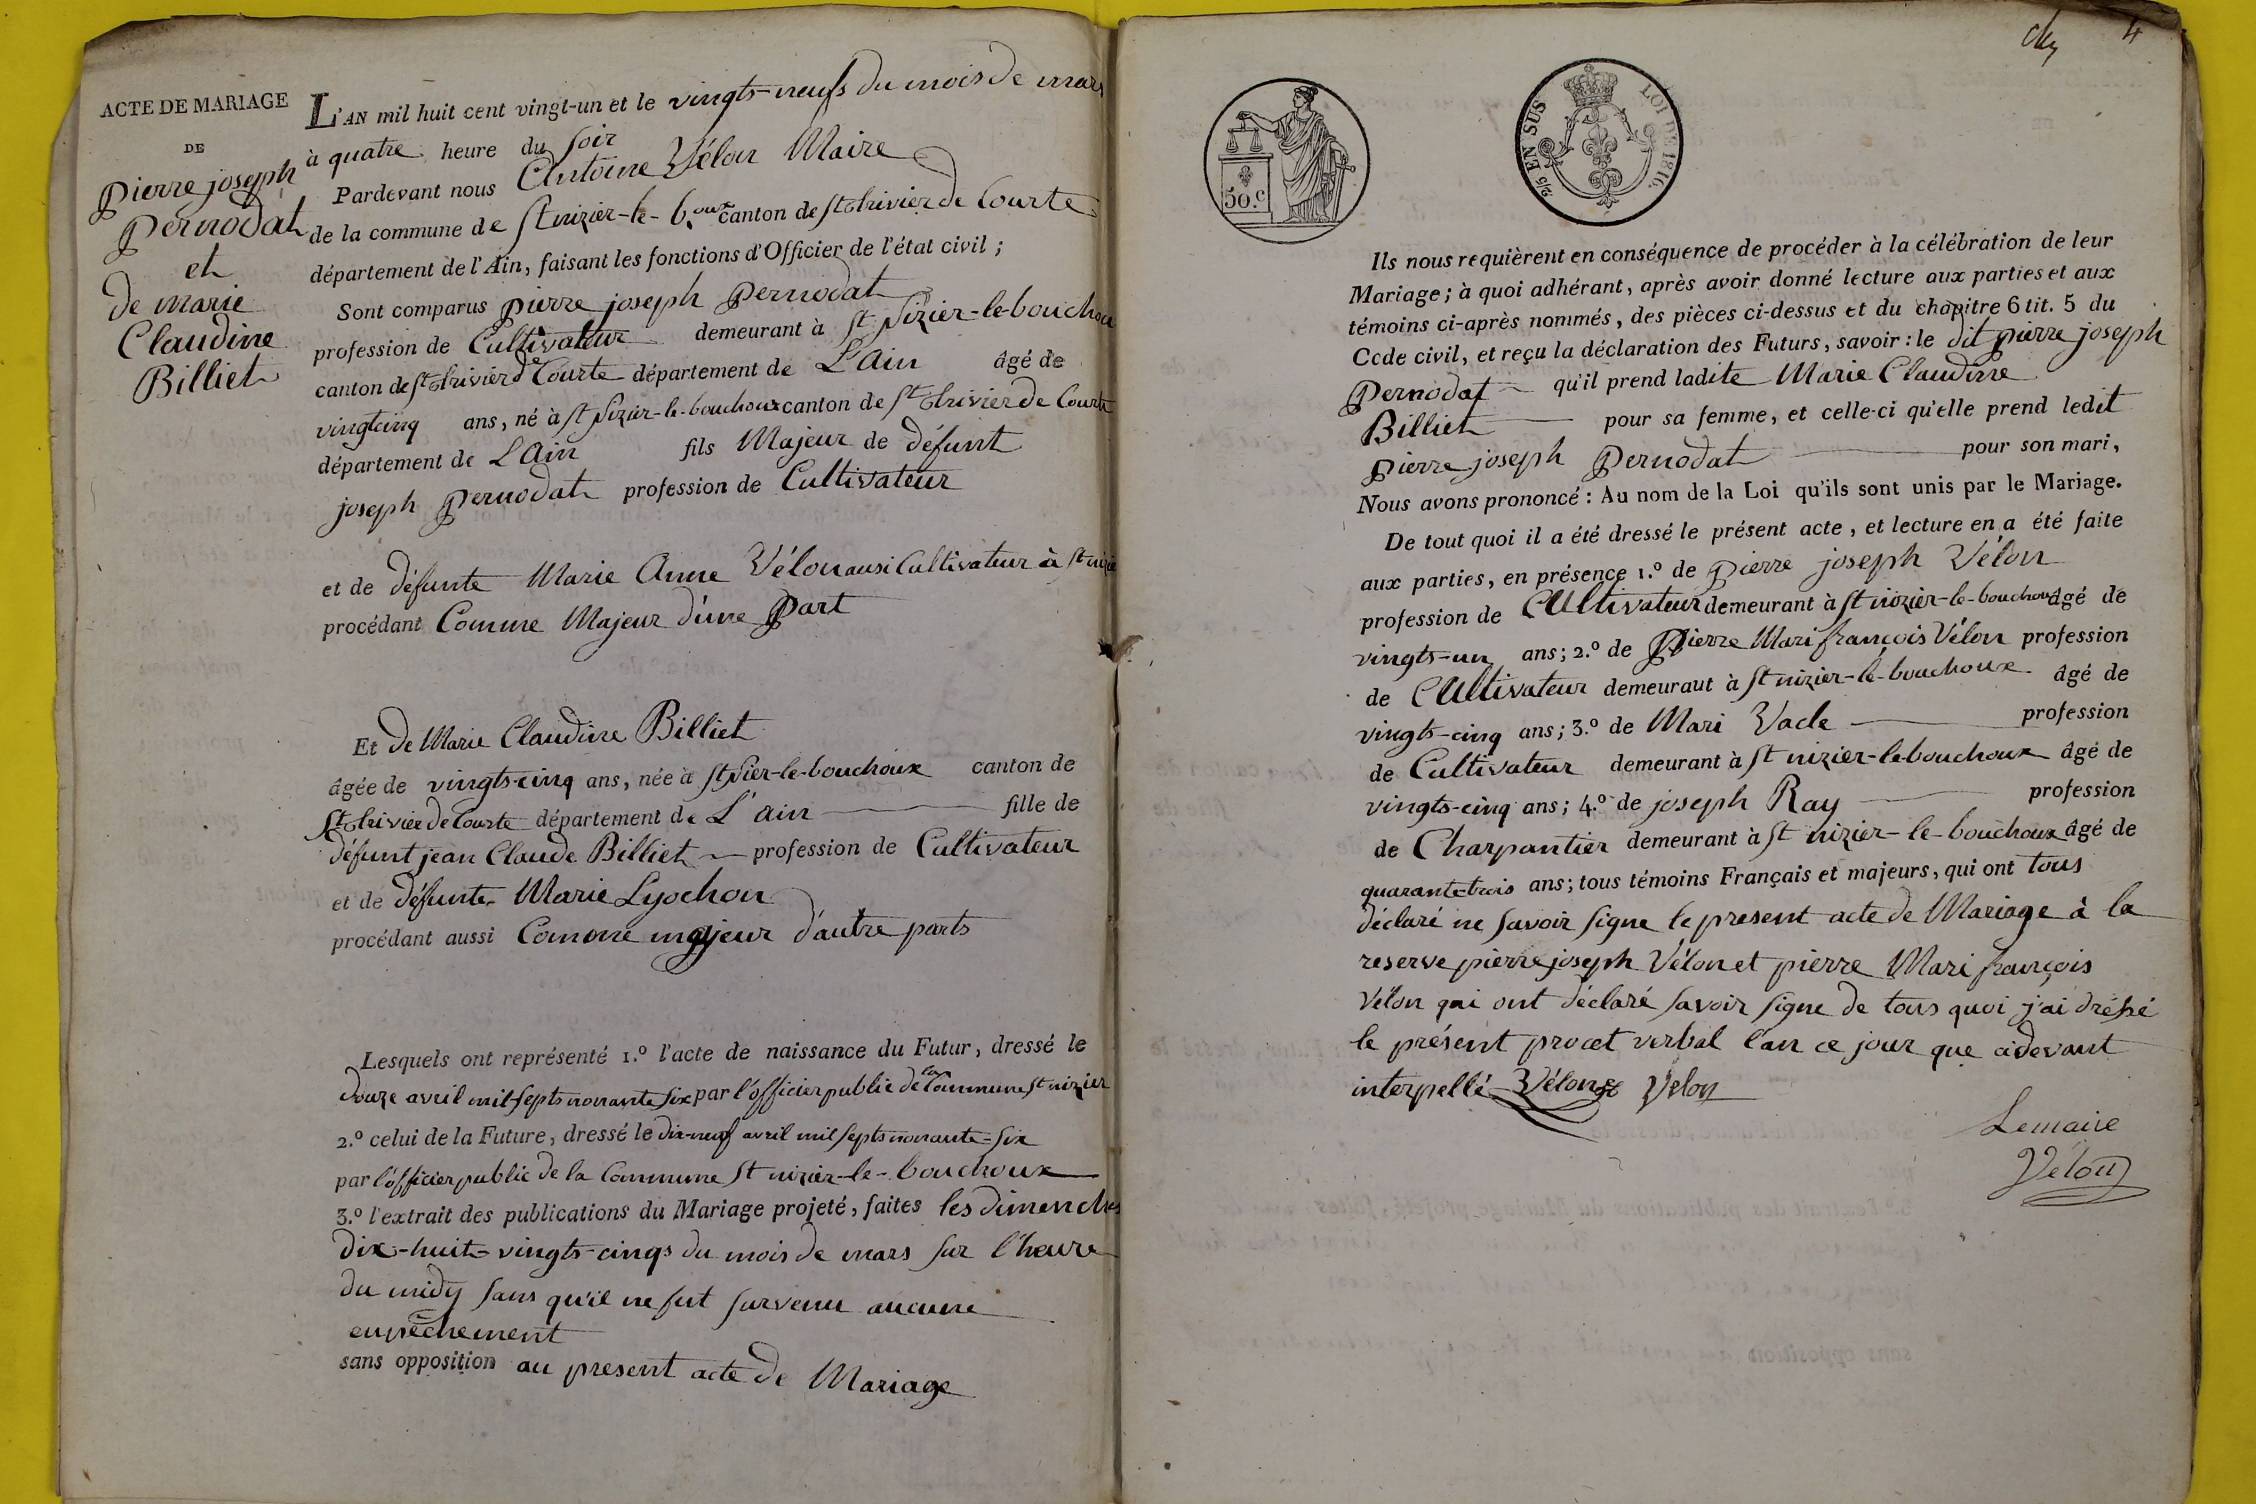 ACTE DE MARIAGE
DE
pierre joseph
pernodat
et
de marie
Claudine
Billiet
L'AN mil huit cent vingt-un et le vingts-neufs du mois de mars
à quatre heure du soir
Pardevant nous Antoine Vélon Maire
de la commune de St nizier-le-b.oux canton de St trivier de Courte
département de l'Ain, faisant les fonctions d'Officier de l'état civil ;
Sont comparus pierre joseph pernodat
profession de Cultivateur demeurant à St Nizier-le-bouchoux
canton de St trivier de Courte département de L'Ain âgé de
vingtcinq ans, né à St Nizier-le-bouchoux canton de St trivier de Courte
département de L'Ain fils Majeur de défunt
joseph pernodat profession de Cultivateur
et de défunte Marie Anne Vélon ausi Cultivateur à St nizier
procédant Comme Majeur d'une part
Et de Marie Claudine Billiet
âgée de vingts-cinq ans, née à St Nier-le-bouchoux canton de
St trivier de Courte département de L'ain fille de
défunt jean Claude Billiet profession de Cultivateur
et de défunte Marie Lyochon
procédant aussi Comme majeur d'autre parts
Lesquels ont représenté 1.º l'acte de naissance du Futur, dressé le
douze avril mil septs nonante six par l'officier public de la Commune St nizier
2.º celui de la Future, dressé le dix-neuf avril mil septs nonante-six
par l'officier public de la Commune St nizier-le-bouchoux
3.º l'extrait des publications du Mariage projeté, faites les dimenches
dix-huit-vingts-cinqs du mois de mars sur l'heure
du midy sans qu'il ne fut survenu aucune
enpêchement
sans opposition au present acte de Mariage
4
50.c
2/5 EN SUS
LOI DE 1816.
Ils nous requièrent en conséquence de procéder à la célébration de leur
Mariage ; à quoi adhérant, après avoir donné lecture aux parties et aux
témoins ci-après nommés, des pièces ci-dessus et du chapitre 6 tit. 5 du
Code civil, et reçu la déclaration des Futurs, savoir : le dit pierre joseph
pernodat qu'il prend ladite Marie Claudine
Billiet pour sa femme, et celle-ci qu'elle prend ledit
pierre joseph pernodat pour son mari,
Nous avons prononcé : Au nom de la Loi qu'ils sont unis par le Mariage.
De tout quoi il a été dressé le présent acte, et lecture en a été faite
aux parties, en présence 1.º de pierre joseph Vélon
profession de Cultivateur demeurant à St nizier-le-bouchoux âgé de
vingts-un ans ; 2.º de pierre Mari françois Vélon profession
de Cultivateur demeuraut à St nizier-le-bouchoux âgé de
vingts-cinq ans ; 3.º de Mari Vade profession
de Cultivateur demeurant à St nizier-le-bouchoux âgé de
vingts-cinq ans ; 4.º de joseph Ray profession
de Charpantier demeurant à St nizier-le-bouchoux âgé de
quarantetrois ans ; tous témoins Français et majeurs, qui ont tous
déclaré ne savoir signe le present acte de Mariage à la
reserve pierre joseph Vélon et pierre Mari françois
Vélon qui ont déclaré savoir signe de tous quoi j'ai dréssé
le présent procet verbal l'an ce jour que cidevant
interpellé Vélon Velon
Lemaire
Vélon